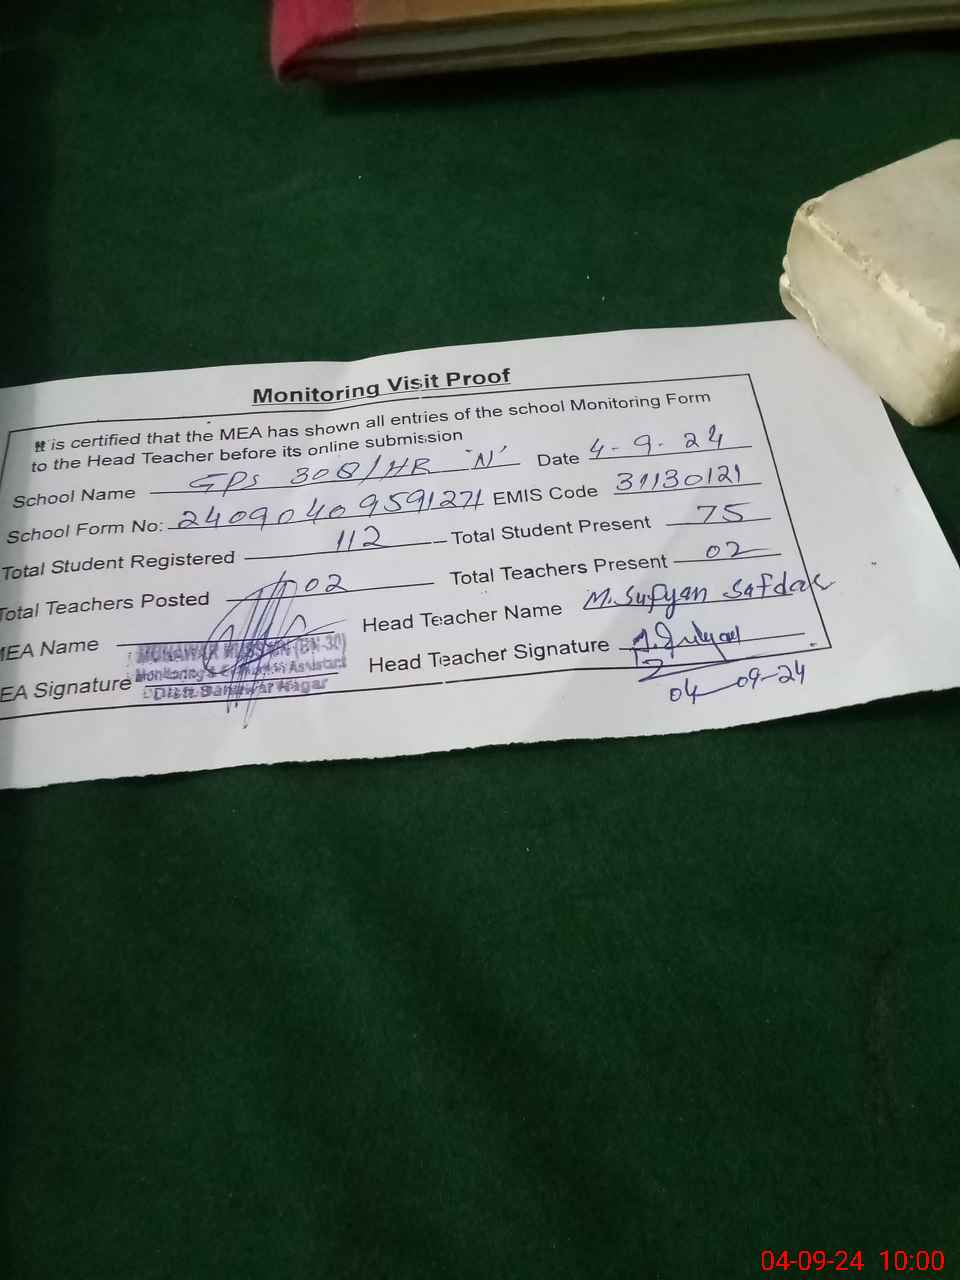 Monitoring Visit Proof
It is certified that the MEA has shown all entries of the school Monitoring Form
to the Head Teacher before its online submission
School Name GPS 308/HR "N" Date 4-9-24
School Form No: 24090409591271 EMIS Code 31130121
Total Student Registered 112 Total Student Present 75
Total Teachers Posted 02 Total Teachers Present 02
MEA Name MUNAWAR HUSSAIN (BN-30) Head Teacher Name M. Sufyan Safdar
Monitoring & Assistant
EA Signature Distt. Bahawal Nagar Head Teacher Signature
04-09-24
04-09-24 10:00